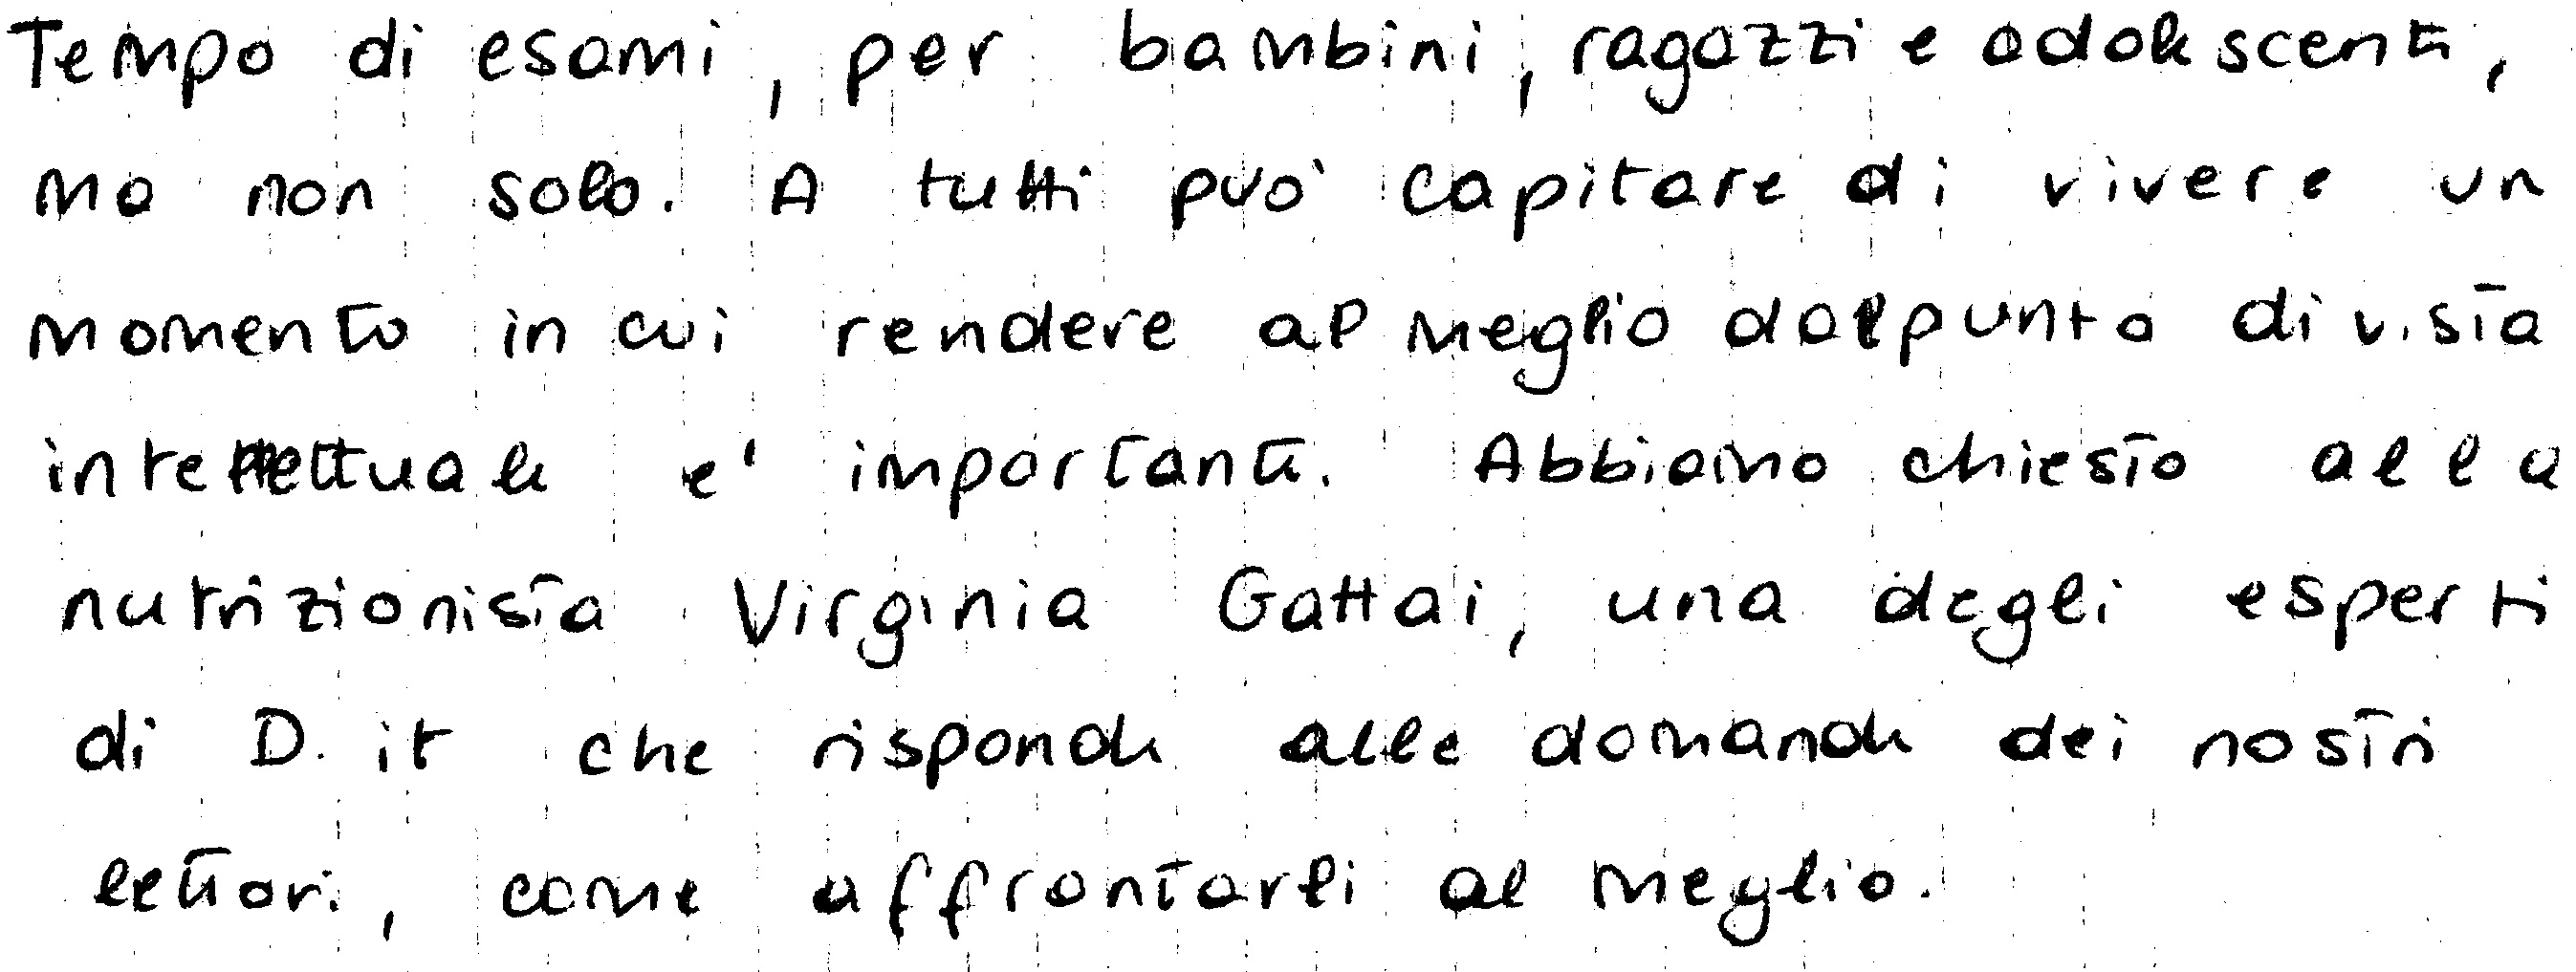 Tempo di esami, per bambini, ragazzi e adolescenti,
ma non solo. A tutti può capitare di vivere un
momento in cui rendere al meglio dal punto di vista
intellettuale e' importante. Abbiamo chiesto alla
nutrizionista Virginia Gattai, una degli esperti
di D.it che risponde alle domande dei nostri
lettori, come affrontarli al meglio.